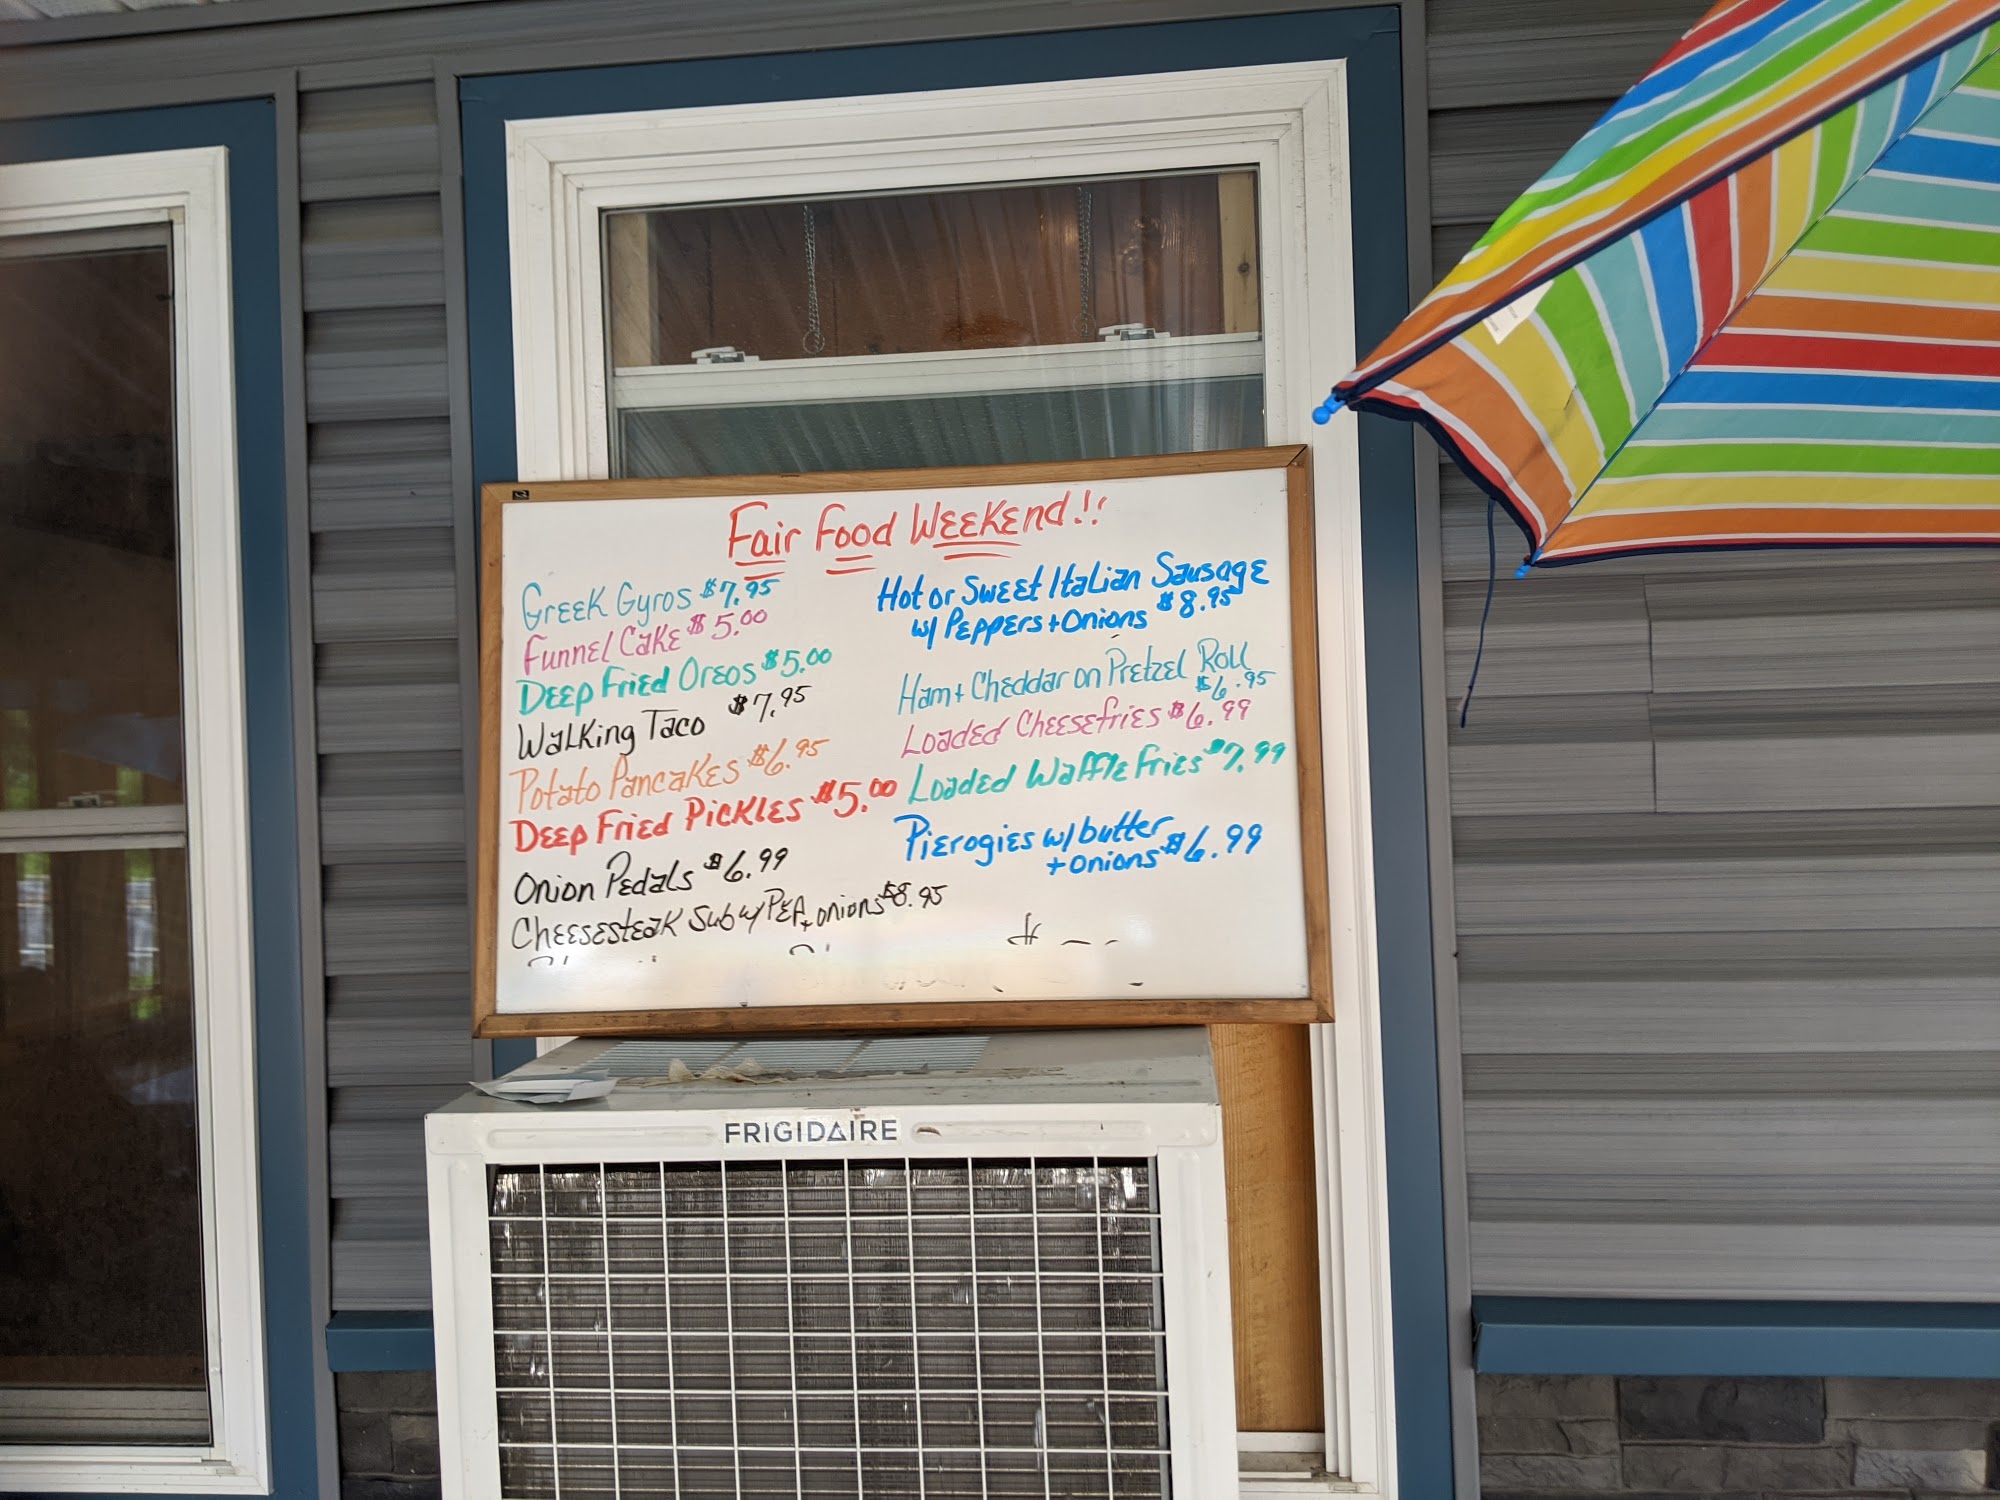 Fair Food Weekend!!
Greek Gyros $7.95
Funnel Cake $5.00
Deep Fried Oreos $5.00
Walking Taco $7.95
Potato Pancakes $6.95
Deep Fried Pickles $5.00
Onion Pedals $6.99
Cheesesteak Sub w/ Pep + onions $8.95
Hot or Sweet Italian Sausage
w/ Peppers + Onions $8.95
Ham + Cheddar on Pretzel Roll
$6.95
Loaded Cheesefries $6.99
Loaded Waffle Fries $7.99
Pierogies w/ butter
+ onions $6.99
FRIGIDAIRE